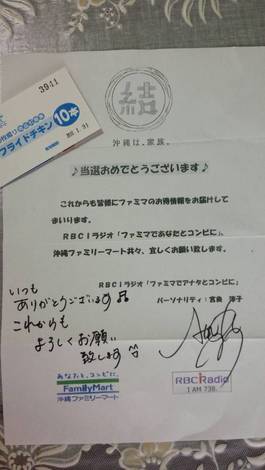 3941
フライドチキン 10本
結
沖縄は、家族。
♪当選おめでとうございます♪
これからも皆様にファミマのお得情報をお届けして
まいります。
RBCiラジオ「ファミマであなたとコンビに」
沖縄ファミリーマート共々、宜しくお願い致します。
RBCiラジオ「ファミマでアナタとコンビに」
パーソナリティ:
いつも
ありがとうございます♬
これからも
よろしくお願い
致します
あなたと、コンビに、
FamilyMart
沖縄ファミリーマート
RBCiRadio
AM 738.